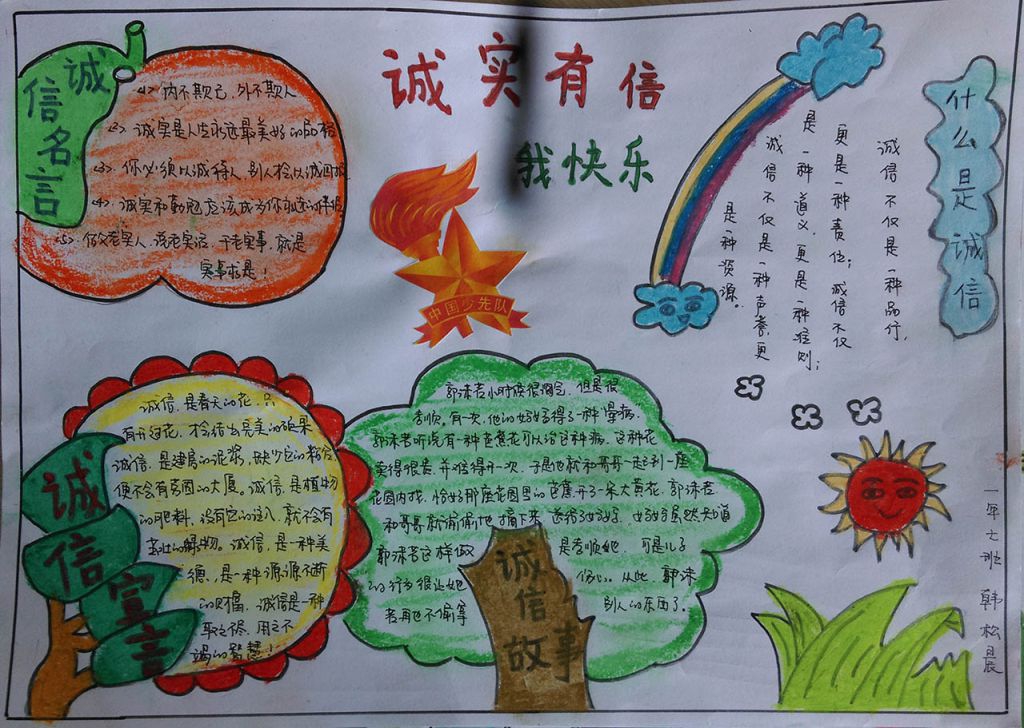 诚实有信
我快乐
诚信名言
<1> 内不欺己，外不欺人
<2> 诚实是人生永远最美好的品格
<3> 你必须以诚待人，别人才会以诚回报
<4> 诚实和勤勉应该成为你永远的伴侣
<5> 做老实人，说老实话，干老实事，就是
实事求是！
中国少先队
什么是诚信
诚信不仅是一种品行，
更是一种责任；诚信不仅
是一种道义，更是一种准则；
诚信不仅是一种声誉，更
是一种资源。
诚信宣言
诚信，是春天的花，只
有开过花，才会结出完美的硕果
诚信，是建房的泥浆，缺少它的粘合
便不会有高固的大厦。诚信，是植物
的肥料，没有它的注入，就不会有
茁壮的绿物。诚信，是一种美
德，是一种源源不断
的财福，诚信是一种
取之不，用之不
竭的智慧！
诚信故事
郭沫若小时侯很淘气，但是很
孝顺。有一次，他的妈妈得了一种晕病。
郭沫若听说有一种芭蕉花可以治这种病，这种花
卖得很贵，并且得开一次，于是他就和哥哥一起到一座
花园内找，恰好那座花园里的芭蕉开了一朵大黄花，郭沫若
和哥哥就偷偷地摘下来，送给了妈妈，妈妈虽然知道
郭沫若这样做是孝顺她，可是儿子
的行为很让她伤心。从此，郭沫
若再也不偷拿别人的东西了。
一年七班 韩松晨